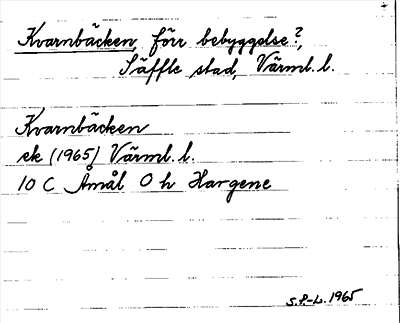 Kvarnbäcken, förr bebyggelse?,
Säffle stad, Värml. l.
Kvarnbäcken
ek (1965) Värml. l.
10 C Åmål O h Hargene
S.P.-L. 1965